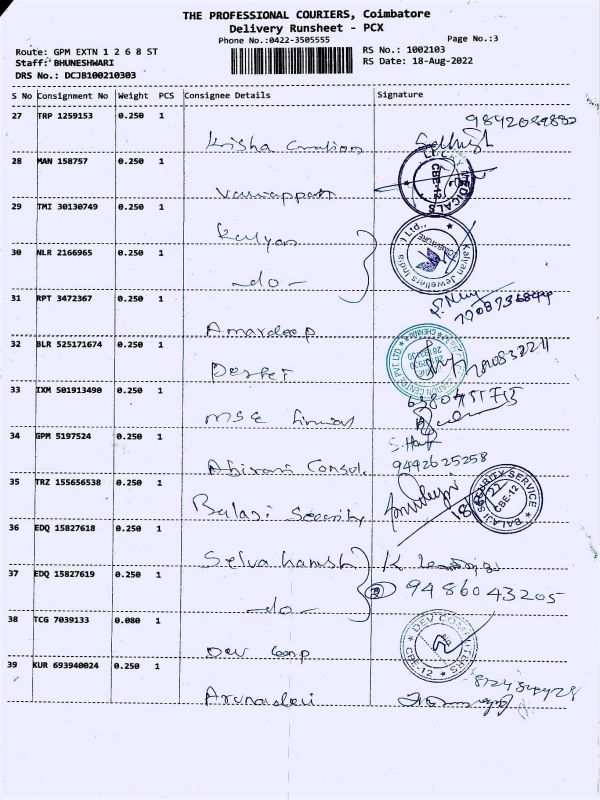 THE PROFESSIONAL COURIERS, Coimbatore
Delivery Runsheet - PCX
Phone No.:0422-3505555
Page No.:3
Route: GPM EXTN 1 2 6 8 ST
RS No.: 1002103
Staff: BHUNESHWARI
RS Date: 18-Aug-2022
DRS No.: DCJB100210303
S No Consignment No Weight PCS Consignee Details Signature
27 TRP 1259153 0.250 1
Krisha
28 MAN 158757 0.250 1
MEDICALS CBE-12
29 TMI 30130749 0.250 1
Kalyan
30 NLR 2166965 0.250 1
Kalyan Jewellers India Ltd.,
-do-
31 RPT 3472367 0.250 1
Amardeep
32 BLR 525171674 0.250 1
33 IXM 501913490 0.250 1
MSE
34 GPM 5197524 0.250 1
Abirami Consol. 9442625258
35 TRZ 155656538 0.250 1
Balaji Security
BALAJI SECURITY SERVICE CBE-12
36 EDQ 15827618 0.250 1
37 EDQ 15827619 0.250 1
9486043205
-do-
38 TCG 7039133 0.080 1
Dev Comp
DEV COMPUTERS CBE-12
39 KUR 693940024 0.250 1
Arunadevi